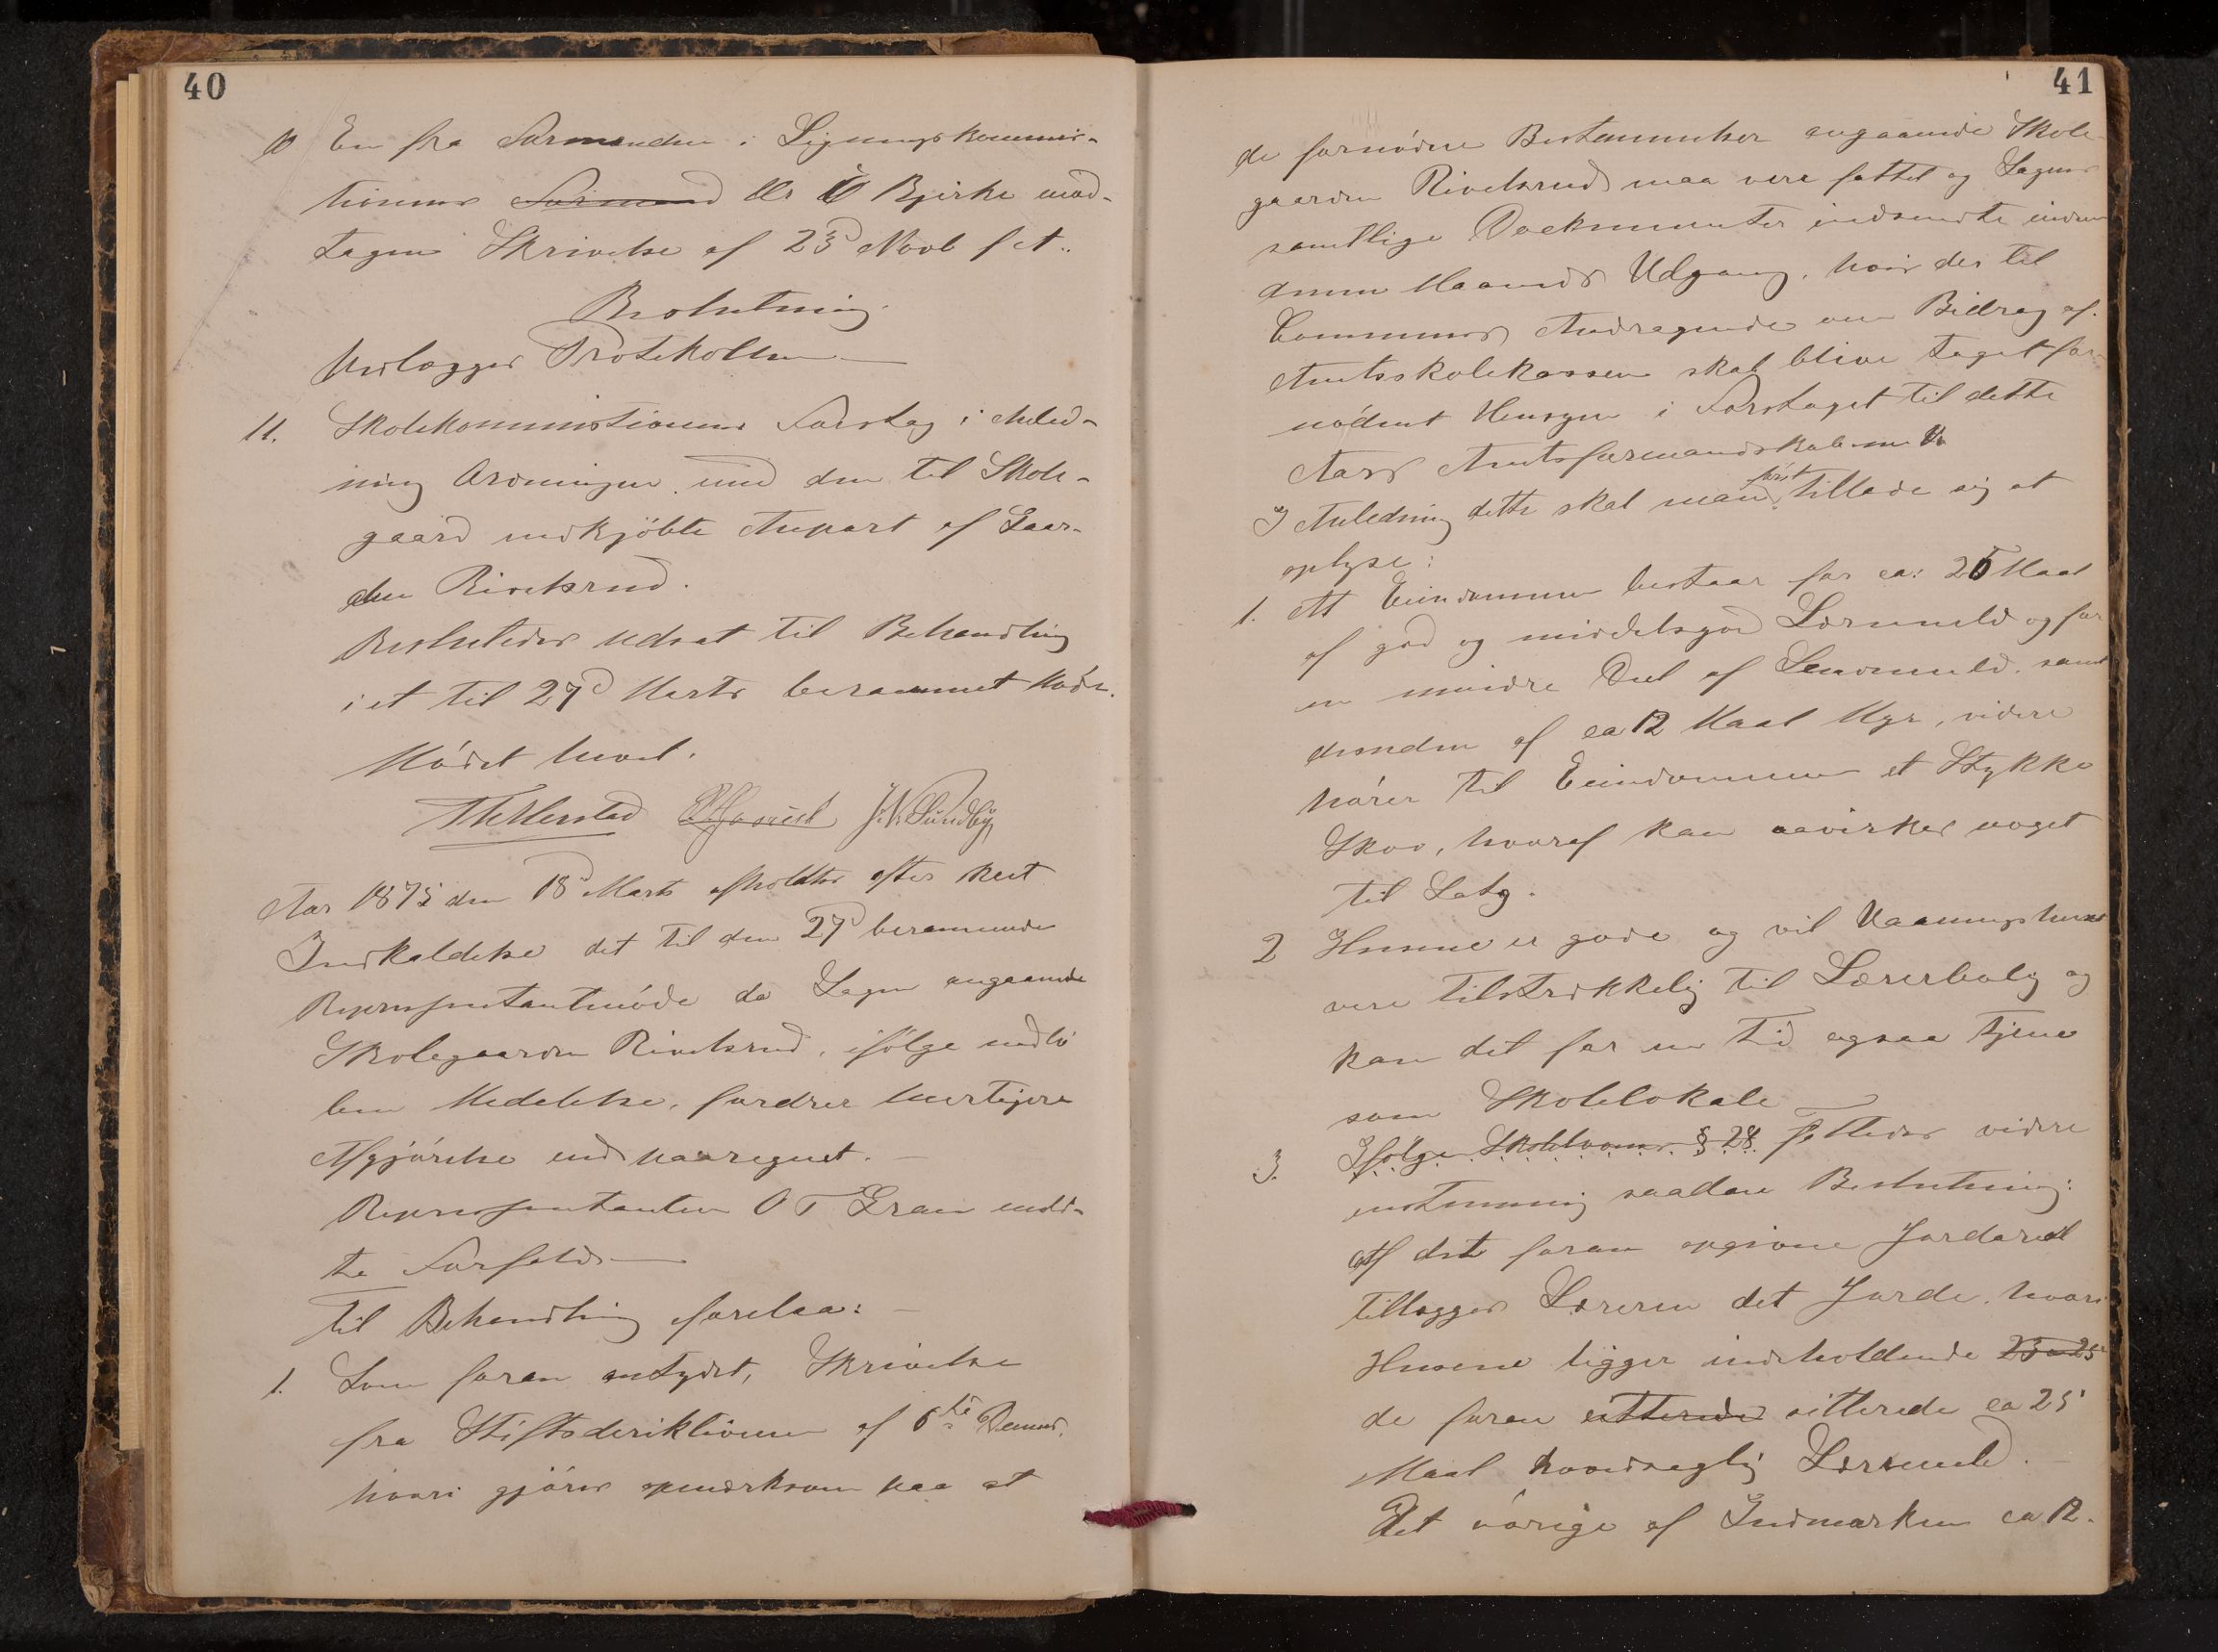 40
10 En fra Formanden i Ligningskommis-
tionen Formand Hr O Bjerke mod-
tagen Skrivelse af 23d Novb f.A..
Beslutning.
Vedlægges Protokollen
11. Skolekommistionens Forslag i Anled-
ning Ordningen med den til Skole-
gaard indkjöbte Anpart af Gaar-
den Rivelsrud.
Besluttedes udsat til Behandling
i et til 27d Marts berammet Möde.
Mödet hævet.
J. N. Sundby
Aar 1875 den 18d Marts afholdtes efter sket
Indkaldelse det til den 27d berammede
Representantmöde da Sagen angaaende
Skolegaarden Rivelsrud, ifölge indlö
ben Medelelse, fordrer hurtigere
Afgjörelse end paaregnet. —
Representanten O T Gran meld-
te Forfald. —
Til Behandling forelaa: —
1. Som foran antydet, Skrivelse
fra Stiftsdirektionen af 6te Dennes,
hvori gjöres opmærksom paa at
41
de fornödne Bestemmelser angaaende Skole-
gaarden Rivelsrud maa være fattet og Sagens
samtlige Dockumenter indsendte inden
denne Maaneds Udgang, hvis der til
Communens Andragende om Bidrag af
Amtsskolekassen skal blive taget for-
nödent Hensyn i Forslaget til dette
Aars Amtsformandskab.
I Anledning dette skal man först tillade sig at
oplyse:
1. At Eiendommen bestaar for ca: 25 Maal
af god og middelsgod Lermuld og for
en mindre Del af Sandmuld, samt
desuden af ca 12 Maal Myr, videre
hörer til Eiendommen et Stykke
Skov, hvoraf kan aavirkes noget
til Salg.
2 Husene er gode og vil Vaaningshuset
være tilstrækkelig til Lærerbolig og
kan det for en Tid ogsaa tjene
som Skolelokale —
3. Ifölge Skolelovens § 28 fattedes videre
enstemmig saadan Beslutning:
Af det foran opgivne Jordareal
tillægges Læreren det Jorde, hvori
Husene ligger indeholdende 23 a 25
de foran sitterede sitterede ca 25
Maal hovedsaglig Lermuld. —
Det övrige af Indmarken ca 12.